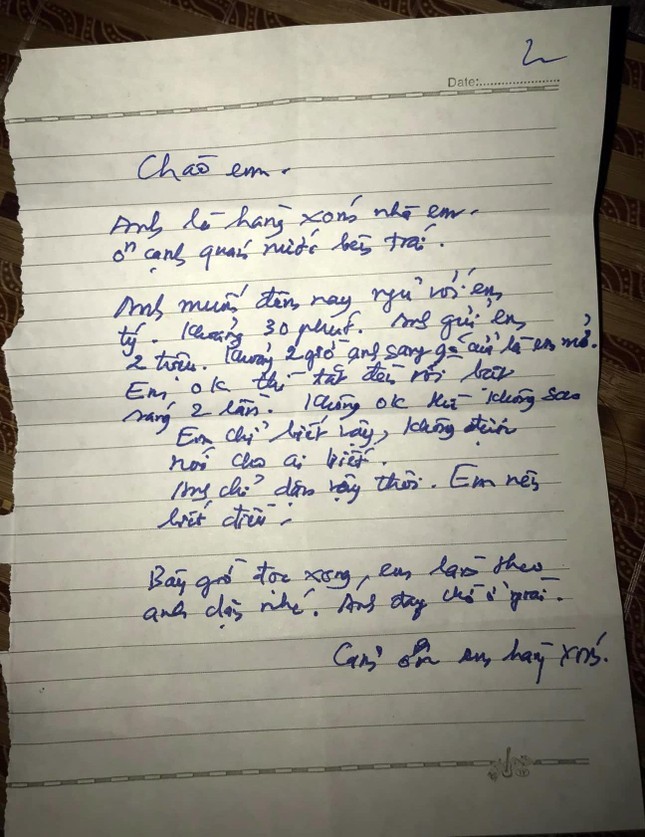 2
Date:........................
Chaò em.
Anh là hàng xóm nhà em.
ở cạnh quán nước bên trái.
Anh muốn đêm nay ngủ với em
tý. Khoảng 30 phút. Anh gửi em
2 triệu. Khoảng 2 giờ anh sang gõ cửa là em mở.
Em ok thì tắt đèn rồi bật
sáng 2 lần. Không ok thì không sao
Em chỉ biết vậy, không được
nói cho ai biết.
Anh chỉ dặn vậy thôi. Em nên
biết điều.
Bây giờ đọc xong, em làm theo
anh dặn nhé. Anh đang chờ ở
Cảm ơn em hàng xóm.